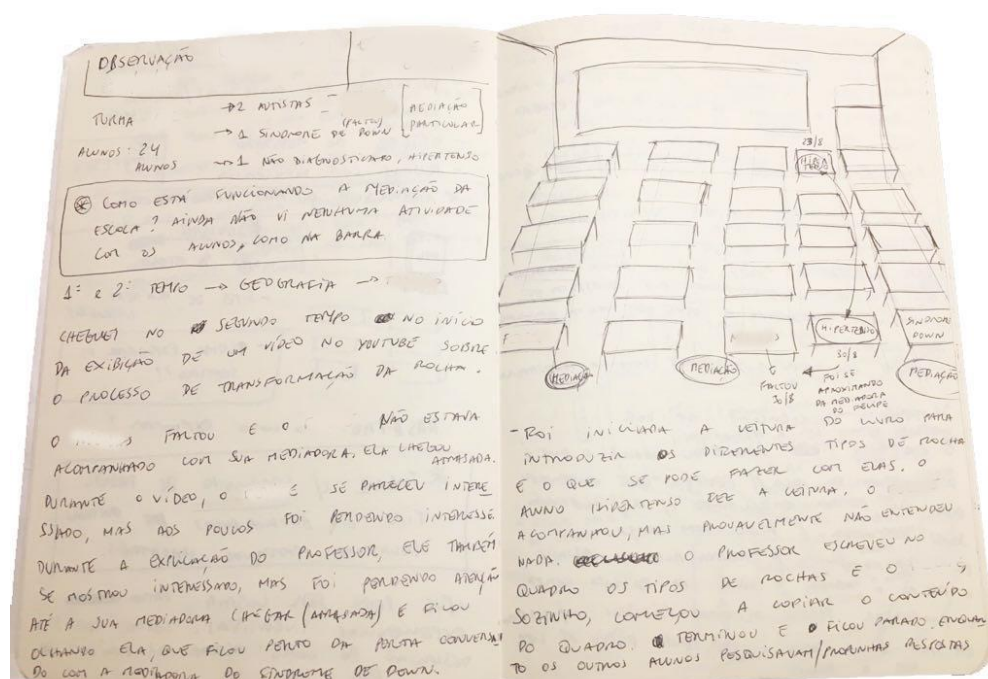 OBSERVAÇÃO
TURMA
→ 2 AUTISTAS
(FALTOU)
→ 1 SINDROME DE DOWN
[MEDIAÇÃO
PARTICULAR]
ALUNOS: 24
ALUNOS
→ 1 NÃO DIAGNOSTICADO, HIPERTENSO
* COMO ESTÁ FUNCIONANDO A MEDIAÇÃO DA
ESCOLA? AINDA NÃO VI NENHUMA ATIVIDADE
COM OS ALUNOS, COMO NA BARRA.
1º e 2º TEMPO → GEOGRAFIA →
CHEGUEI NO SEGUNDO TEMPO NO INÍCIO
DA EXIBIÇÃO DE UM VÍDEO NO YOUTUBE SOBRE
O PROCESSO DE TRANSFORMAÇÃO DA ROCHA.
O FALTOU E O NÃO ESTAVA
ACOMPANHADO COM SUA MEDIADORA. ELA CHEGOU
ATRASADA.
DURANTE O VÍDEO, O SE PARECEU INTERE
SSADO, MAS AOS POUCOS FOI PERDENDO INTERESSE.
DURANTE A EXPLICAÇÃO DO PROFESSOR, ELE TAMBÉM
SE MOSTROU INTERESSADO, MAS FOI PERDENDO ATENÇÃO
ATÉ A SUA MEDIADORA CHEGAR (ATRASADA) E FICOU
OLHANDO ELA, QUE FICOU PERTO DA PORTA CONVERSAN
DO COM A MEDIADORA DO SINDROME DE DOWN.
23/8
HIPERTENSO
SINDROME
DOWN
MEDIAÇÃO
MEDIAÇÃO
FALTOU
30/8
30/8
FOI SE
APROXIMANDO
DA MEDIADORA
DO FELIPE
MEDIAÇÃO
- FOI INICIADA A LEITURA DO LIVRO PARA
INTRODUZIR OS DIFERENTES TIPOS DE ROCHA
E O QUE SE PODE FAZER COM ELAS. O
ALUNO HIPERTENSO FEZ A LEITURA. O
ACOMPANHOU, MAS PROVAVELMENTE NÃO ENTENDEU
NADA. O PROFESSOR ESCREVEU NO
QUADRO OS TIPOS DE ROCHAS E O
SOZINHO, COMEÇOU A COPIAR O CONTEÚDO
DO QUADRO. TERMINOU E FICOU PARADO, ENQUAN
TO OS OUTROS ALUNOS PESQUISAVAM/PROPUNHAS RESPOSTAS